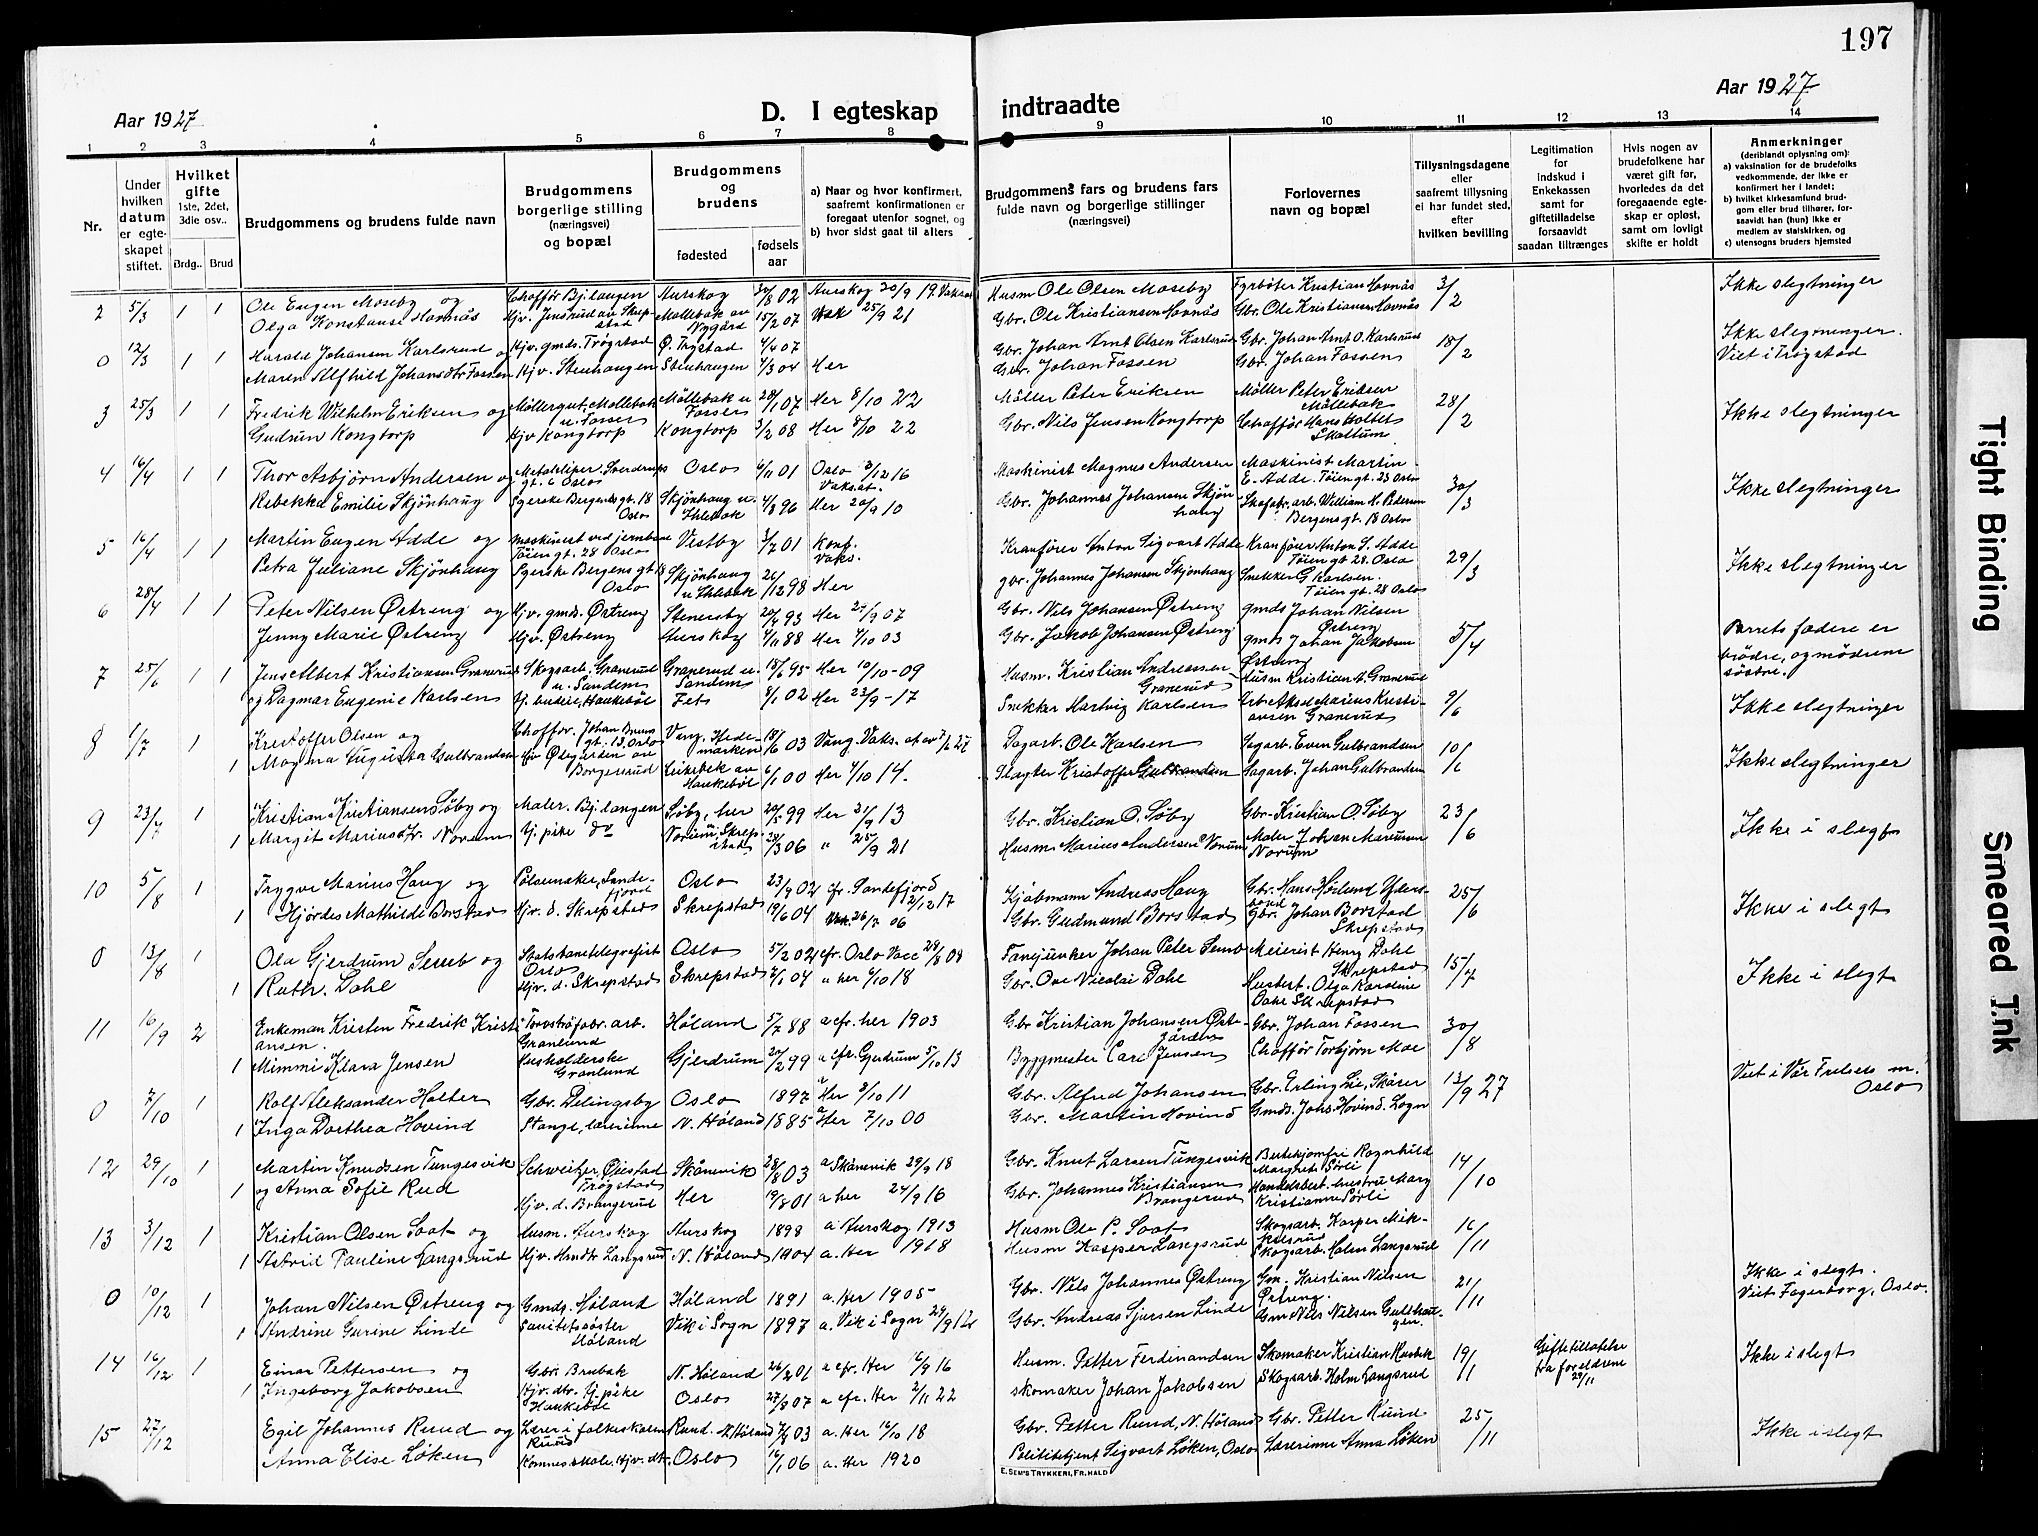 197
Aar 1927
D. I egteskap indtraadte
Aar 1927
1 2 3 4 5 6 7 8 9 10 11 12 13 14
Nr.
Under hvilken datum er egteskapet stiftet.
Hvilket gifte 1ste, 2det, 3die osv..
Brdg.. Brud
Brudgommens og brudens fulde navn
Brudgommens borgerlige stilling (næringsvei) og bopæl
Brudgommens og brudens
fødested
fødsels aar
a) Naar og hvor konfirmert, saafremt konfirmationen er foregaat utenfor sognet, og
b) hvor sidst gaat til alters
Brudgommens fars og brudens fars fulde navn og borgerlige stillinger (næringsvei)
Forlovernes navn og bopæl
Tillysningsdagene eller saafremt tillysning ei har fundet sted, efter hvilken bevilling
Legitimation for indskud i Enkekassen samt for giftetilladelse forsaavidt saadan tiltrænges
Hvis nogen av brudefolkene har været gift før, hvorledes da det foregaaende egteskap er opløst, samt om lovligt skifte er holdt
Anmerkninger (deriblandt oplysning om):
a) vaksination for de brudefolks vedkommende, der ikke er konfirmert her i landet;
b) hvilket kirkesamfund brudgom eller brud tilhører, forsaavidt han (hun) ikke er medlem av statskirken, og
c) utensogns bruders hjemsted
2 5/3 1 1 Ole Eugen Moseby og Chaffør Bjilangen Aurskog 02 Aurskog 20/9 19. Husm Ole Olsen Moseby Fyrbøter Kristian Hovnäs 3/2 Ikke slegtninger
Olga Konstanse Hovnäs 15/2 07 25/9 21 Gbr. Ole Kristiansen Hovnäs Gbr. Ole Kristiansen Hovnäs
0 12/3 1 1 Harald Johansen Karlsrud og Hjv. gmds. Trøgstad Ø. Trystad 4/4 07 Gbr. Johan Amt Olsen Karlsrud Gbr. Johan Amt O. Karlsrud 18/2 Ikke slegtninger.
Maren Alfhild Johansdtr Fossen Hjv. Stenhaugen Stenhaugen 4/3 04 Her Gbr. Johan Fossen Gbr. Johan Fossen Viet i Trøgstad
3 25/3 1 1 Fredrik Wilhelm Eriksen og Møllergut, Møllebak u. Fosser Møllebak u Fosser 28/1 07 Her 8/10 22 Møller Peter Eriksen Møller Peter Eriksen Møllebak 28/2 Ikke slegtninger
Gudrun Kongtorp Hjv Kongtorp Kongtorp 3/2 08 Her 8/10 22 Gbr. Nils Jensen Kongtorp Chaffør Hans Holtet Skattum
4 16/4 1 1 Thor Asbjørn Andersen og Metalsliper. Sverdrups gt. 6 Oslo Oslo 6/11 01 Oslo 3/12 16 Vaks.at. Maskinist Magnus Andersen Maskinist Martin E. Adde. Tøien gt. 28 Oslo 30/3 Ikke slegtninger
Rebekka Emilie Skjønhaug Syerske Bergens gt. 18 Oslo Skjønhaug u. Ihlebæk 4/8 96 Her 20/9 10 Gbr. Johannes Johansen Skjønhaug Skofabr. arb. William H. Pedersen Bergens gt. 18 Oslo
5 16/4 1 1 Martin Eugen Adde og Maskinist ved jernbane Tøien gt. 28 Oslo Vestby 3/7 01 Konf. Vaks. Kranfører Anton Sigvart Adde Kranfører Anton S. Adde Tøien gt 28. Oslo 29/3 Ikke slegtninger
Petra Juliane Skjønhaug Syerske Bergens gt. 18 Oslo Skjønhaug u Ihlebæk 26/12 98 Her gbr. Johannes Johansen Skjønhaug Snekker G Karlsen. Tøien gt. 28 Oslo
6 28/4 1 1 Peter Nilsen Østreng og Hjv. gmds. Østreng Stenersby 20/4 93 Her 29/9 07 Gbr. Nils Johansen Østreng gmds Johan Nilsen Østreng 5/4 Parrets fædre er brødre, og mødrene søstre.
Jenny Marie Østreng Hjv. Østreng Aurskog 4/11 88 Her 4/10 03 Gbr. Jakob Johansen Østreng gmds Johan Jakobsen Østreng
7 25/6 1 1 Jens Albert Kristiansen Granerud Skogsarb. Granerud u. Sandem Granerud u. Sandem 18/6 95 Her 10/10-09 Husm. Kristian Andreassen Granerud Husm Kristian A. Granerud 9/6 Ikke slegtninger
og Dagmar Eugenie Karlsen Hankebøl Fet 8/1 02 Her 23/9-17 Snekker Hartvig Karlsen Arb Aksel Marius Kristiansen Granerud
8 1/7 1 Kristoffer Olsen og Chaffør. Johan Bruns gt. 13. Oslo Vang, Hedemarken 18/6 03 Vang. Vaks. at av 7/6 27 Dagarb. Ole Karlsen Sagarb. Even Gulbrandsen 10/6 Ikke slegtninger
1 Magna Augusta Gulbrandsen Borgersrud Hankebøl 6/1 00 Her 4/10 14. Slagter Kristoffer Gulbrandsen Sagarb. Johan Gulbrandsen
9 23/7 1 Kristian Kristiansen Søby og Maler. Bjilangen Søby, her 20/5 99 Her 21/9 13 Gbr. Kristian O. Søby Gbr. Kristian O. Søby 23/6 Ikke i slegt
1 Margit Mariusdtr. Norum Tj. pike do Norum, Skrepstad 28/3 06 " 25/9 21 Husm Marius Andersen Norum Maler Johan Mariusen Norum
10 5/8 1 Trygve Marius Haug og Pølsemaker, Sandefjord Oslo 23/9 02 cfr. Sandefjord 2/12 17 Kjøbmann Andreas Haug Gbr. Hans Hørlund Ydersbond 25/6 Ikke i slegt
1 Hjørdes Mathilde Borstad Hjv. d. Skrepstad Skrepstad 19/6 04 Vak. 26/7 06 Gbr. Gudmund Borstad Gbr. Johan Borstad Skrepstad
0 13/8 1 Ola Gjerdrum Semb og Statsbanetelegrafist Oslo Oslo 5/2 02 cfr. Oslo Vacc 28/8 08 Fanejunker Johan Peter Semb Meierist Henry Dahl Skrepstad 15/7 Ikke i slegt
1 Ruth. Dahl Hjv. d. Skrepstad Skrepstad 04 " her 4/10 18 Gbr. Ove Nicolai Dahl Husbest. Olga Karoline Dahl Skrepstad
11 16/9 2 Enkeman Kristen Fredrik Kristiansen. Torvstrøfabr. arb. Granlund Høland 5/7 88 a cfr. her 1903 Gbr Kristian Johansen Østegården Gbr. Johan Fossen 30/8
1 Mimmi Klara Jensen Husholderske Granlund Gjerdrum 20/2 99 a cfr. Gjerdrum 5/10 13 Byggmester Carl Jensen Chaffør Torbjørn Moe
0 7/10 1 Rolf Aleksander Holter Gbr. Delingsby Oslo 1897 a Her 8/10 11 Gbr. Alfred Johansen Gbr. Erling Lie, Skårer 13/9 27 Viet i Vår Frelsers m. Oslo
1 Inga Dorthea Hovind Stange, lærerinne N. Høland 1885 a Her 7/10 00 Gbr. Martin Hovind Gmds. Johs. Hovind. Løgn
12 29/10 1 Martin Knudsen Tungesvik Schweitzer, Øiestad Trøgstad Skånevik 28/8 03 a Skånevik 29/9 18 Gbr. Knut Larsen Tungesvik Butikjomfru Ragnhild Margrete Sørli 14/10
1 og Anna Sofie Rud Hjv. d. Brangerud Her 19/8 01 a her 24/9 16 Gbr. Johannes Kristiansen Brangerud Handelsbest. hustru Mary Kristianne Sørli
13 3/12 1 Kristian Olsen Saat og Husm. Aurskog Aurskog 1898 a Aurskog 1913 Husm Ole P. Saat Skogsarb. Kasper Mikkelsrud 16/11
1 Astrid Pauline Langsrud Hjv. Hmdtr. Langsrud N. Høland 1904 a. Her 1918 Husm Kasper Langsrud Skogsarb. Holm Langsrud
0 10/12 1 Johan Nilsen Østreng og Gmds. Høland Høland 1891 a. Her 1905 Gbr. Nils Johannes Østreng Gm. Kristian Nilsen Østreng. 21/11 Ikke i slegt. Viet Fagerborg, Oslo.
1 Andrine Gurine Linde Sanitetssøster Høland Vik i Sogn 1897 a. Vik i Sogn 29/9 12 Gbr. Andreas Sjursen Linde Gm Nils Nilsen
14 16/12 1 Einar Pettersen og Gbr. Brubak N. Høland 26/2 01 a cfr. Her 16/9 16 Husm. Petter Ferdinandsen Skomaker Kristian Husbik 19/11 Giftetillatelse fra foreldrene 29/11 Ikke i slegt
1 Ingeborg Jakobsen Hjv. dtr. tj. pike Hankebøl Oslo 27/8 07 a cfr. Her 2/11 22 skomaker Johan Jakobsen Skogsarb. Holm Langsrud
15 27/12 Egil Johannes Ruud og Lærer i folkeskolen Ruud Ruud. N. Høland 7/8 03 a. Her 16/10 18 Gbr. Petter Ruud, N. Høland Gbr. Petter Ruud 25/11 Ikke i slegt
Anna Elise Løken Komnes skole. Hjv. dtr. Oslo 16/1 06 a. Her 1920 Politibetjent Sigvart Løken, Oslo Lærerinne Anna Løken
E. SEM'S TRYKKERI, FR.HALD
Tight Binding
Smeared Ink